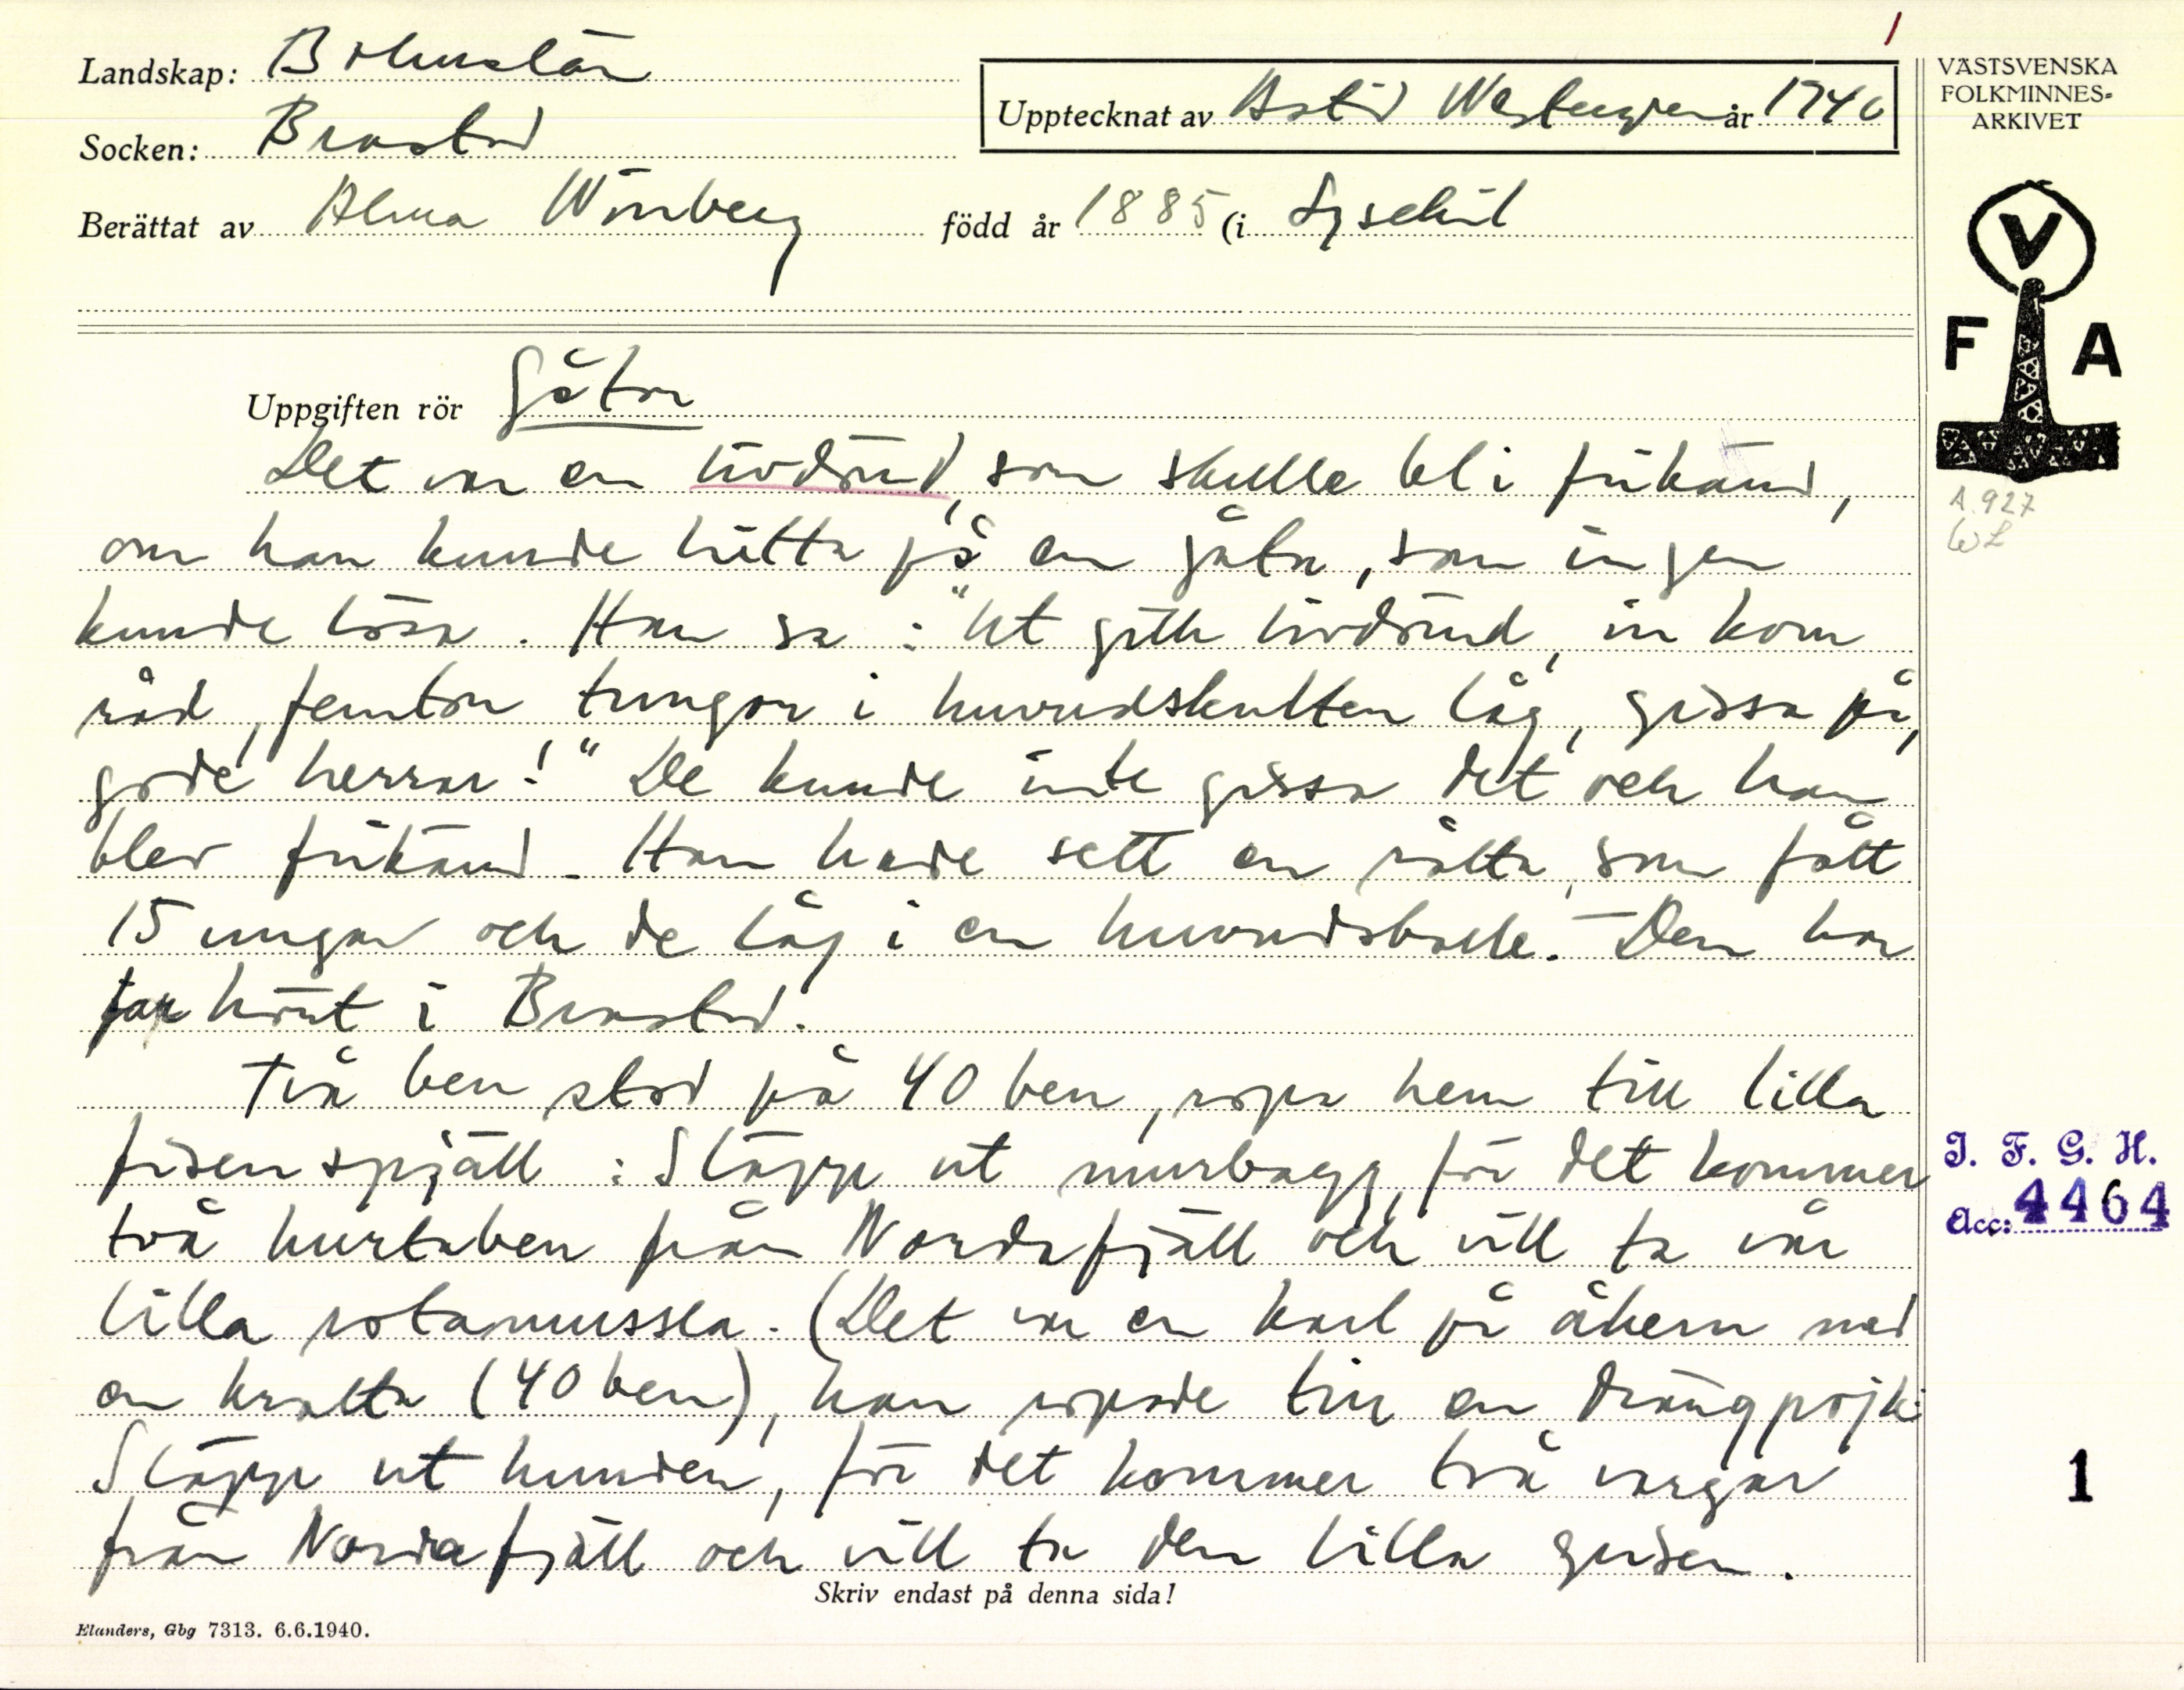 Landskap: Bohuslän
Socken: Brastad
Upptecknat av Astrid Westergren år 1940
Berättat av Alma Wimberg född år 1885 (i Lysekil
VÄSTSVENSKA
FOLKMINNES-
ARKIVET
V
F A
A. 927
Uppgiften rör Gåtor
Det var en livdömd, som skulle bli frikänd,
om han kunde hitta på en gåta, som ingen
kunde lösa. Han sa: "Ut gick livdömd, in kom
råd, femton tungor i huvudskulten låg, gissa på,
gode herrar!" De kunde inte gissa det och han
blev frikänd. Han hade sett en råtta, som fått
15 ungar och de låg i en huvudskalle. – Den har
jag hört i Brastad.
Två ben stod på 40 ben, ropa hem till lilla
fisenspjäll: Släpp ut murbagg, för det kommer
två hurtaben från Nordafjäll och vill ta vår
lilla rotamussla. (Det var en karl på åkern med
en kratta (40 ben), han ropade till en drängpojk:
Släpp ut hunden, för det kommer två vargar
från Nordafjäll och vill ta den lilla grisen.
I. F. G. H.
Acc: 4464
1
Skriv endast på denna sida!
Elanders, Gbg 7313. 6.6.1940.